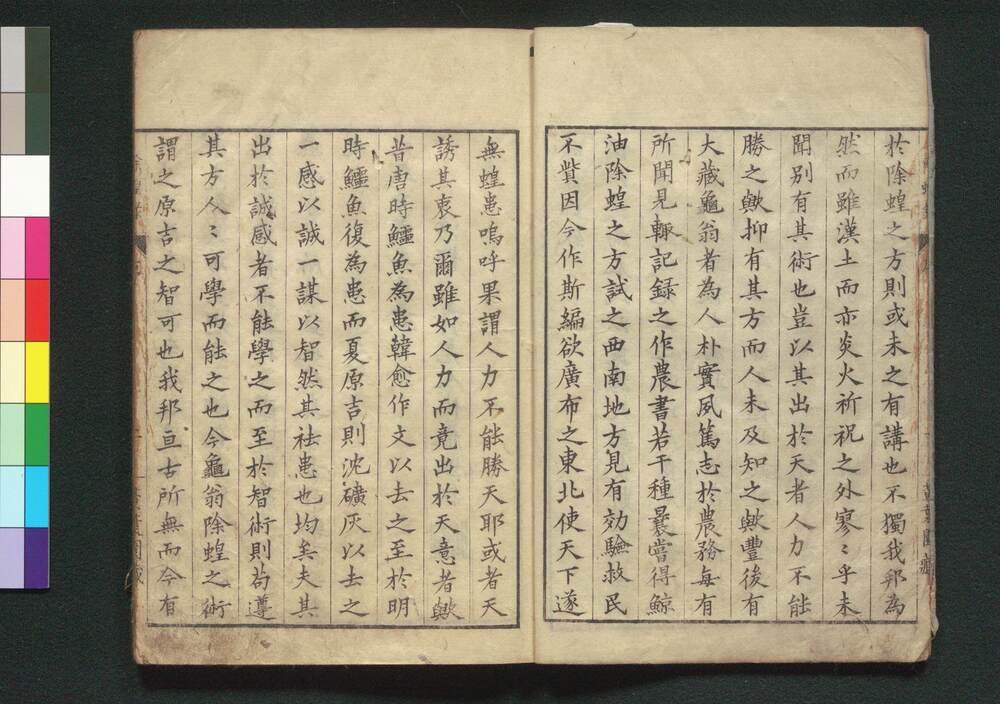 於除蝗之方則或未之有講也不獨我邦為
然而雖漢土而亦炎火祈祝之外寥〻乎未
聞別有其術也豈以其出於天者人力不能
勝之歟抑有其方而人未及知之歟豐後有
大藏龜翁者為人朴實夙篤志於農務每有
所聞見輙記録之作農書若干種曩嘗得鯨
油除蝗之方試之西南地方見有効驗救民
不貲因今作斯編欲廣布之東北使天下遂
無蝗患嗚呼果謂人力不能勝天耶或者天
誘其衷乃爾雖如人力而竟出於天意者歟
昔唐時鱷魚為患韓愈作文以去之至於明
時鱷魚復為患而夏原吉則沈礦灰以去之
一感以誠一謀以智然其祛患也均矣夫其
出於誠感者不能學之而至於智術則苟遵
其方人〻可學而能之也今龜翁除蝗之術
謂之原吉之智可也我邦亘古所無而今有